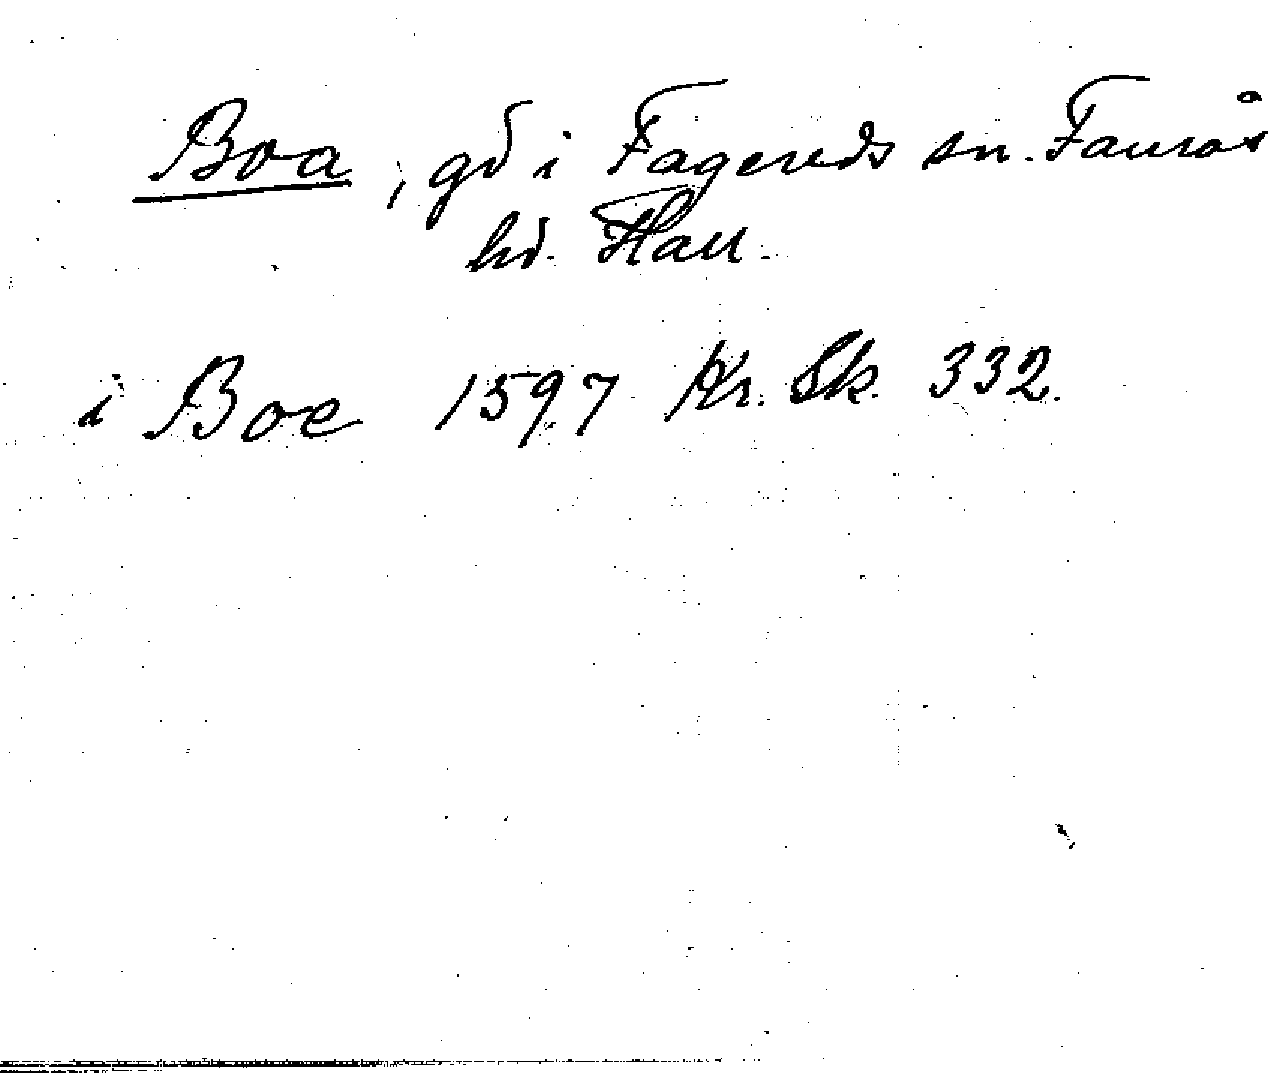 Boa, gd i Fagereds sn. Faurås
hd. Hall.
i Boe 1597 Kr. Sk. 332.